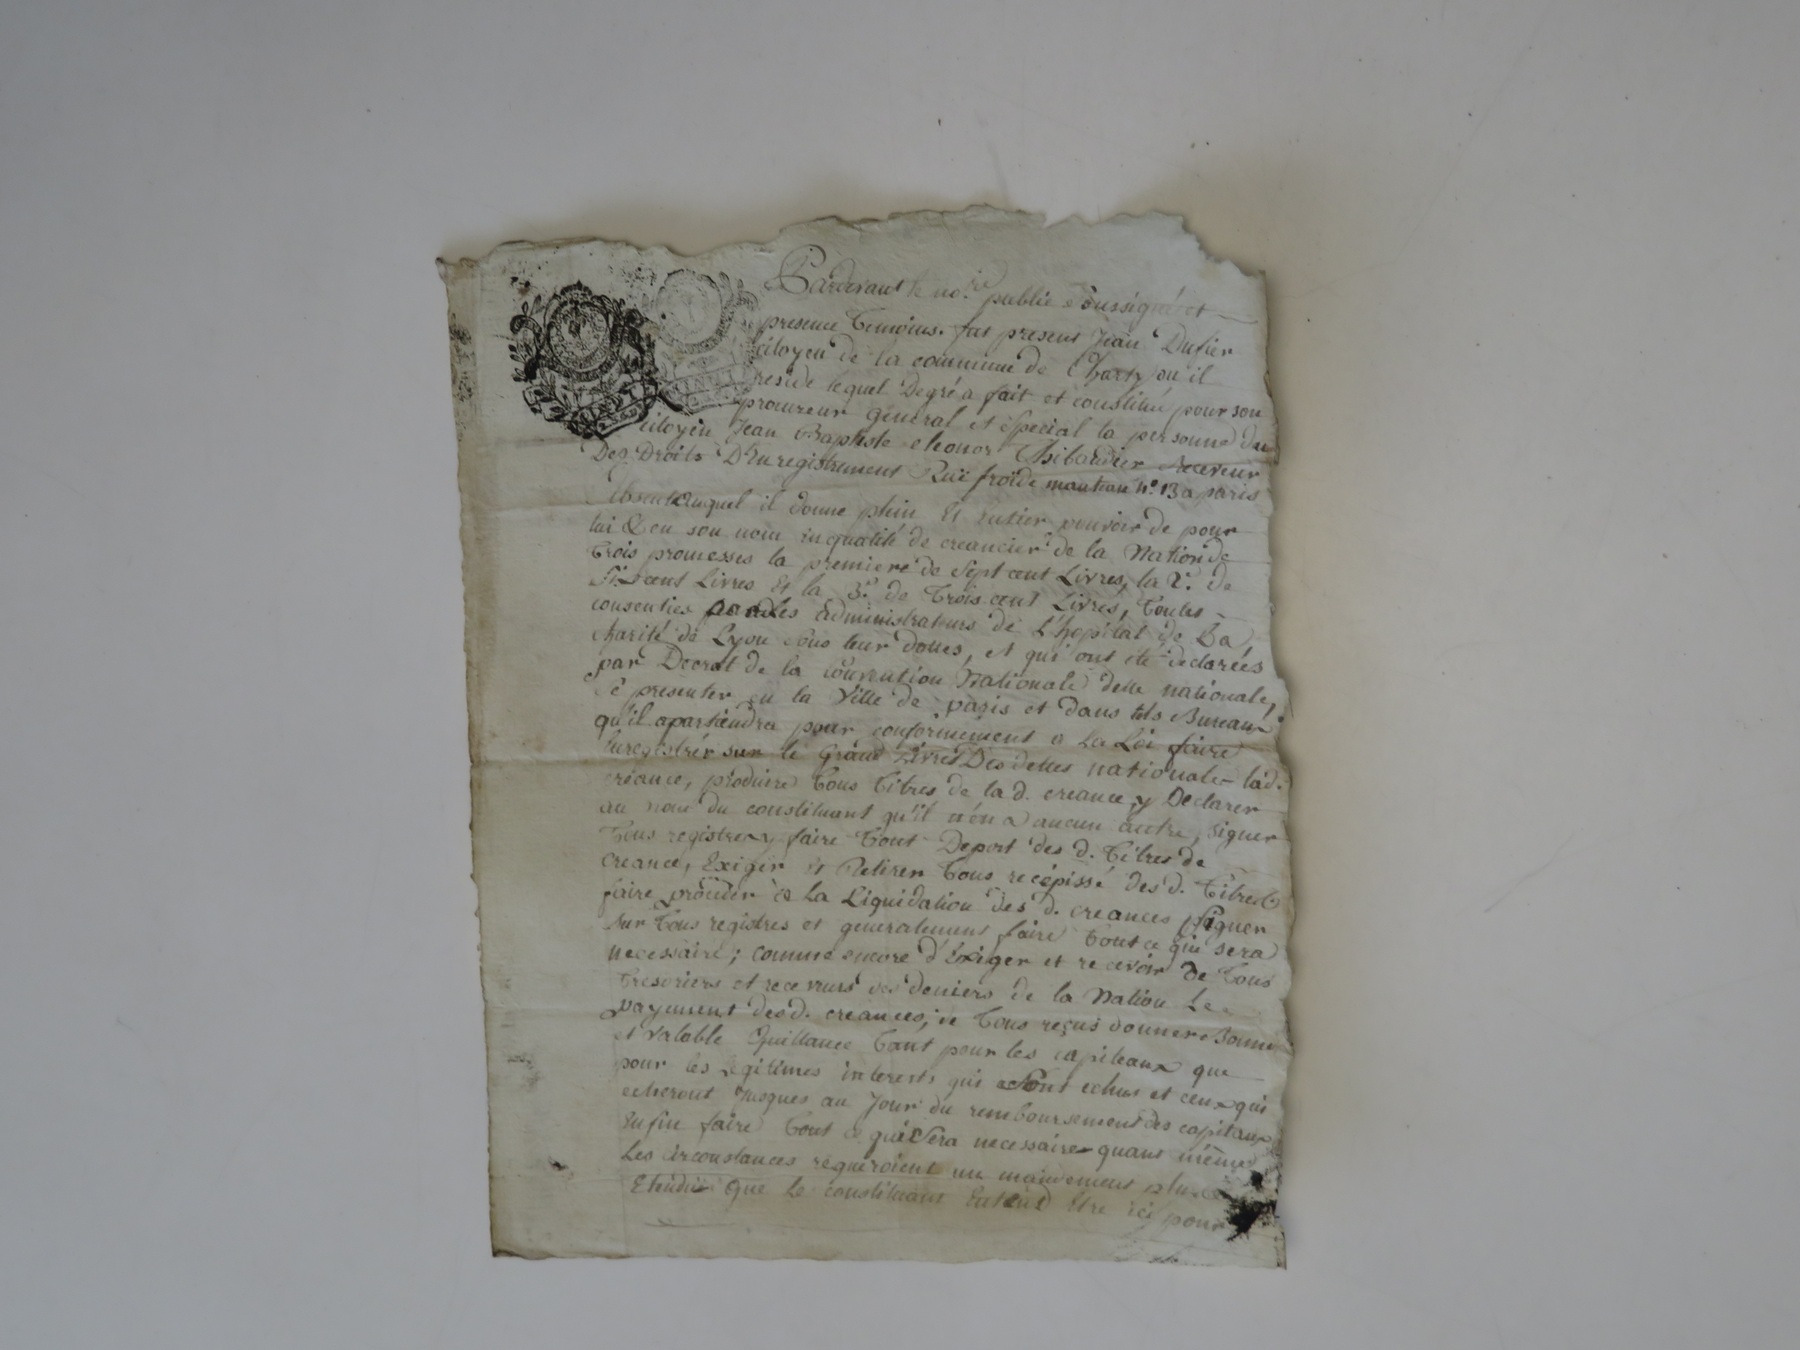 Pardevant le no.re public soussigné et
presence temoins. fut present Jean Dufier
citoyen de la commune de Charly ou il
reside lequel Degré a fait et constitué pour son
procureur général et special la personne du
citoyen Jean Baptiste eleonor Thibaudier receveur
Des Droits D'Enregistrement Ruë froide manteau n.o 13 a paris
Absent auquel il donne plein Et entier pouvoir de pour
lui & en son nom in qualité de creancier de la Nation de
trois promesses la premiere de Sept cent Livres, la 2.e de
Six cent Livres Et la 3.e de trois cent Livres, toutes
consenties par les administrateurs de L'hopital de La
charité de Lyon sous leur dattes, et qui ont eté declarées
par Decret de la Convention Nationale dette nationale,
Se presenter en la Ville de paris et dans tels Bureaux
qu'il apartiendra pour conformement a La Loi faire
Enregistrér sur le Grand Livre Des dettes nationale lad.
créance, produire tous titres de la d. creance, y Declarer
au nom du constituant qu'il n'en a aucun autre, signer
tous registres, faire tout Deport des d. titres de
creance, Exiger Et Retirer tous recépissé des d. titres
faire procéder a La Liquidation des d. creances Signer
sur tous registres et generalement faire tout ce qui sera
necessaire; comme encore d'Exiger et recevoir de tous
tresoriers et receveurs des deniers de la Nation Le
payement des d. creances, de tous reçus donner Bonne
et valable Quittance tant pour les capiteaux que
pour les Légitimes interests qui Sont echus et ceux qui
echeront jusques au Jour du remboursement des capitaux
Enfin faire tout ce qui Sera necessaire quant même
Les circonstances requeroient un mandement plus
Etendu Que le constituant Entend Etre ici pour